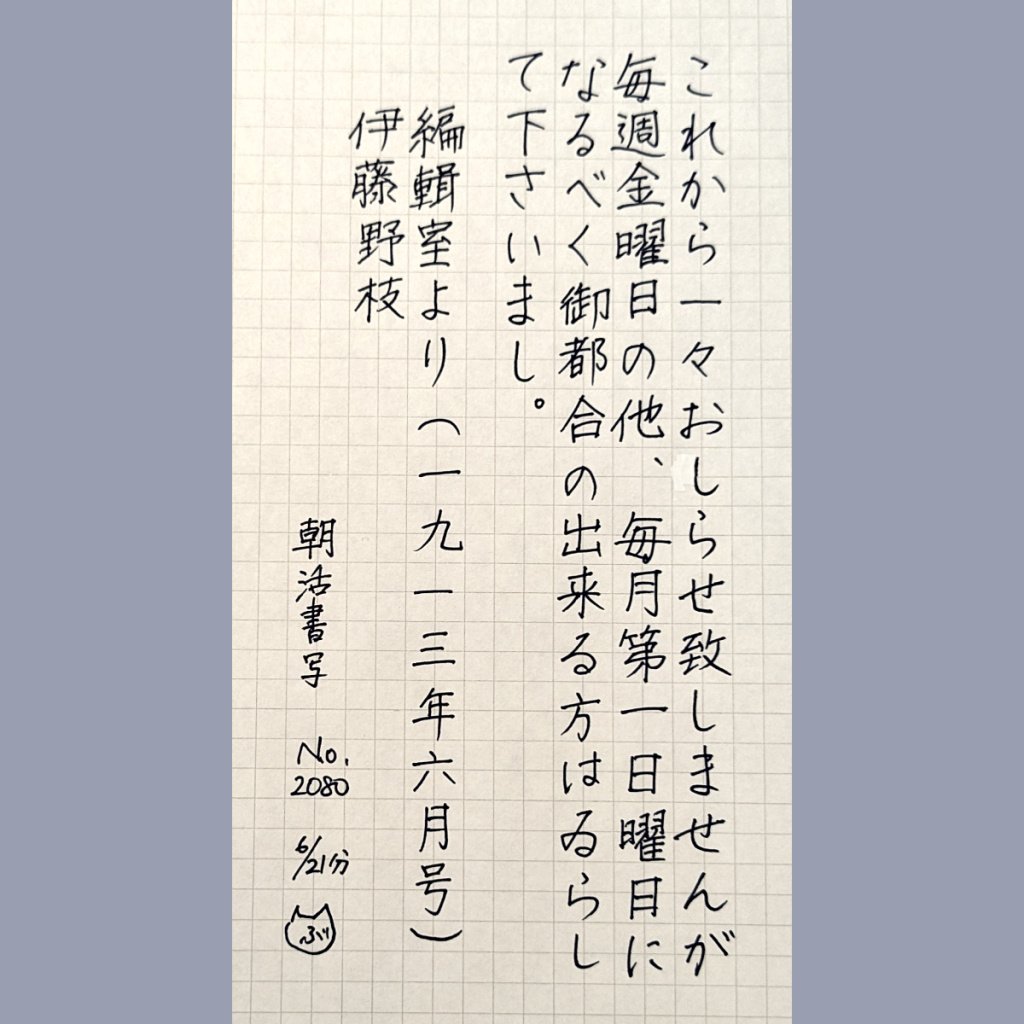 これから一々おしらせ致しませんが
毎週金曜日の他、毎月第一日曜日に
なるべく御都合の出来る方はゐらし
て下さいまし。
編輯室より（一九一三年六月号）
伊藤野枝
朝活書写 No.2080 6/21分
ぶり